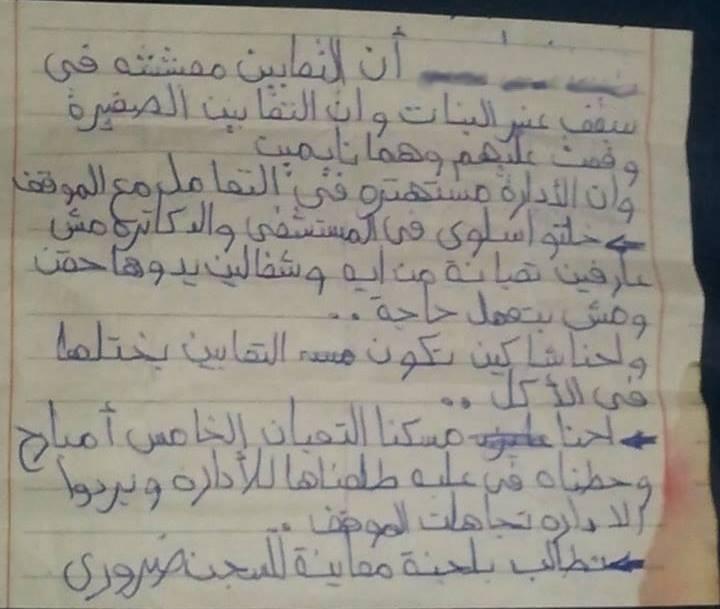 أن الثعابين معششه في
سقف عنبر البنات وان التعابين الصغيرة
وقعت عليهم وهما نايمين
وان الأدارة مستهتره في التعامل مع الموقف
خالتو اسلوى في المستشفى والدكاترة مش
عارفين تعبانة من ايه وشغالين يدوها حقن
ومش بتعمل حاجة ..
واحنا شاكين يكون التعابين بختلها
في الأكل ..
احنا مسكنا التعبان الخامس أمباح
وحطناه في علبه طلعناها للأداره وبردوا
الاداره تجاهلت الموقف ..
نطالب بلجنة معاينة للسجن ضروري